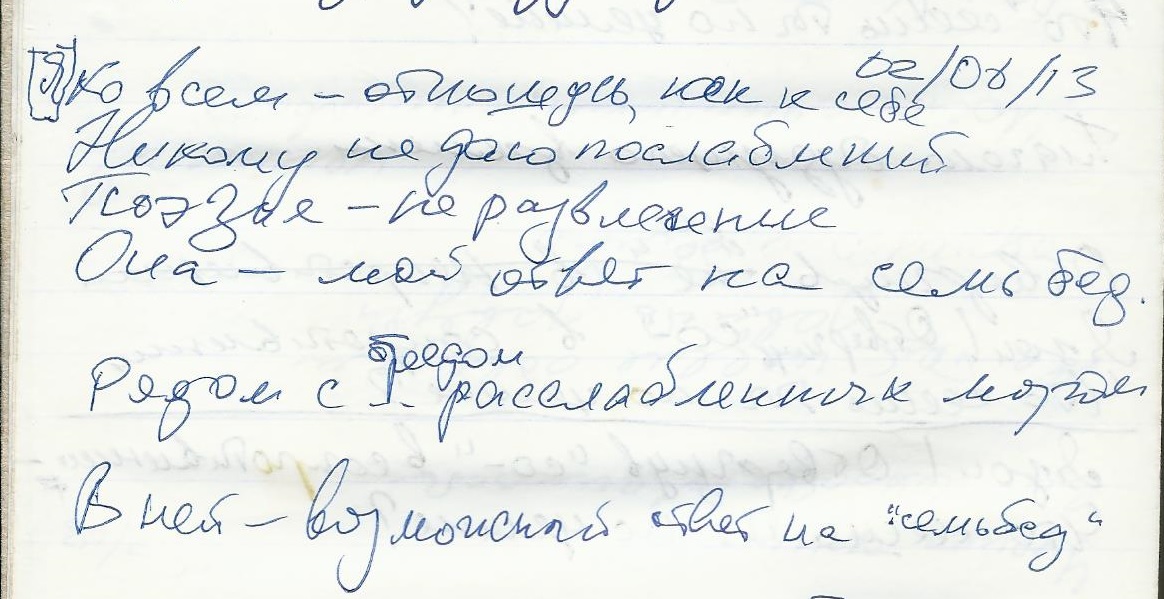 02/08/13
Я Ко всем – отношусь, как к себе
Никому не даю послаблений
Поэзия – не развлечение
Она – мой ответ на семь бед.
бредом
Рядом с расслабленных мозгом
В ней – возможный ответ на "семь бед"